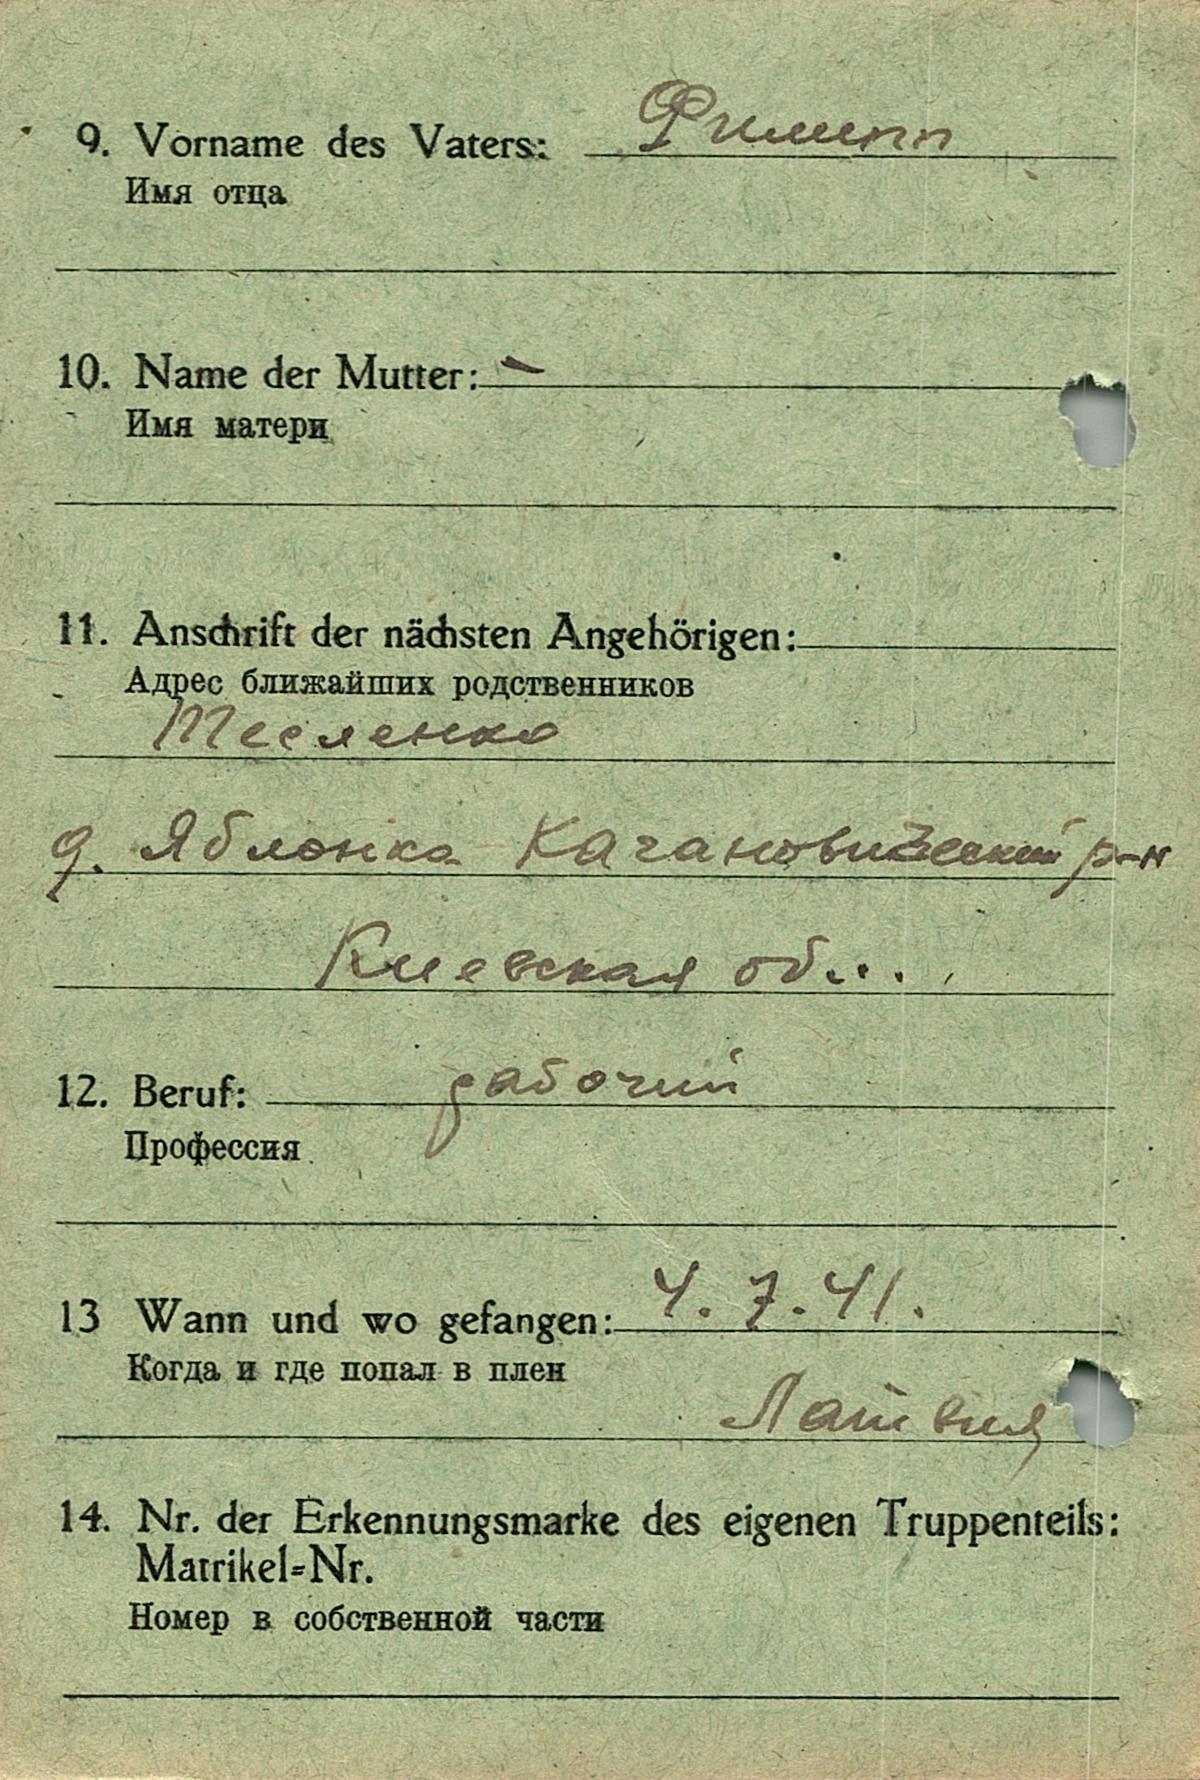 9. Vorname des Vaters: Филипп
Имя отца
10. Name der Mutter: –
Имя матери
11. Anschrift der nächsten Angehörigen:
Адрес ближайших родственников
Тесленко
д. Яблонка Кагановический р-н
Киевская об...
12. Beruf: рабочий
Профессия
13 Wann und wo gefangen: 4.7.41.
Когда и где попал в плен
Латвия
14. Nr. der Erkennungsmarke des eigenen Truppenteils:
Matrikel-Nr.
Номер в собственной части